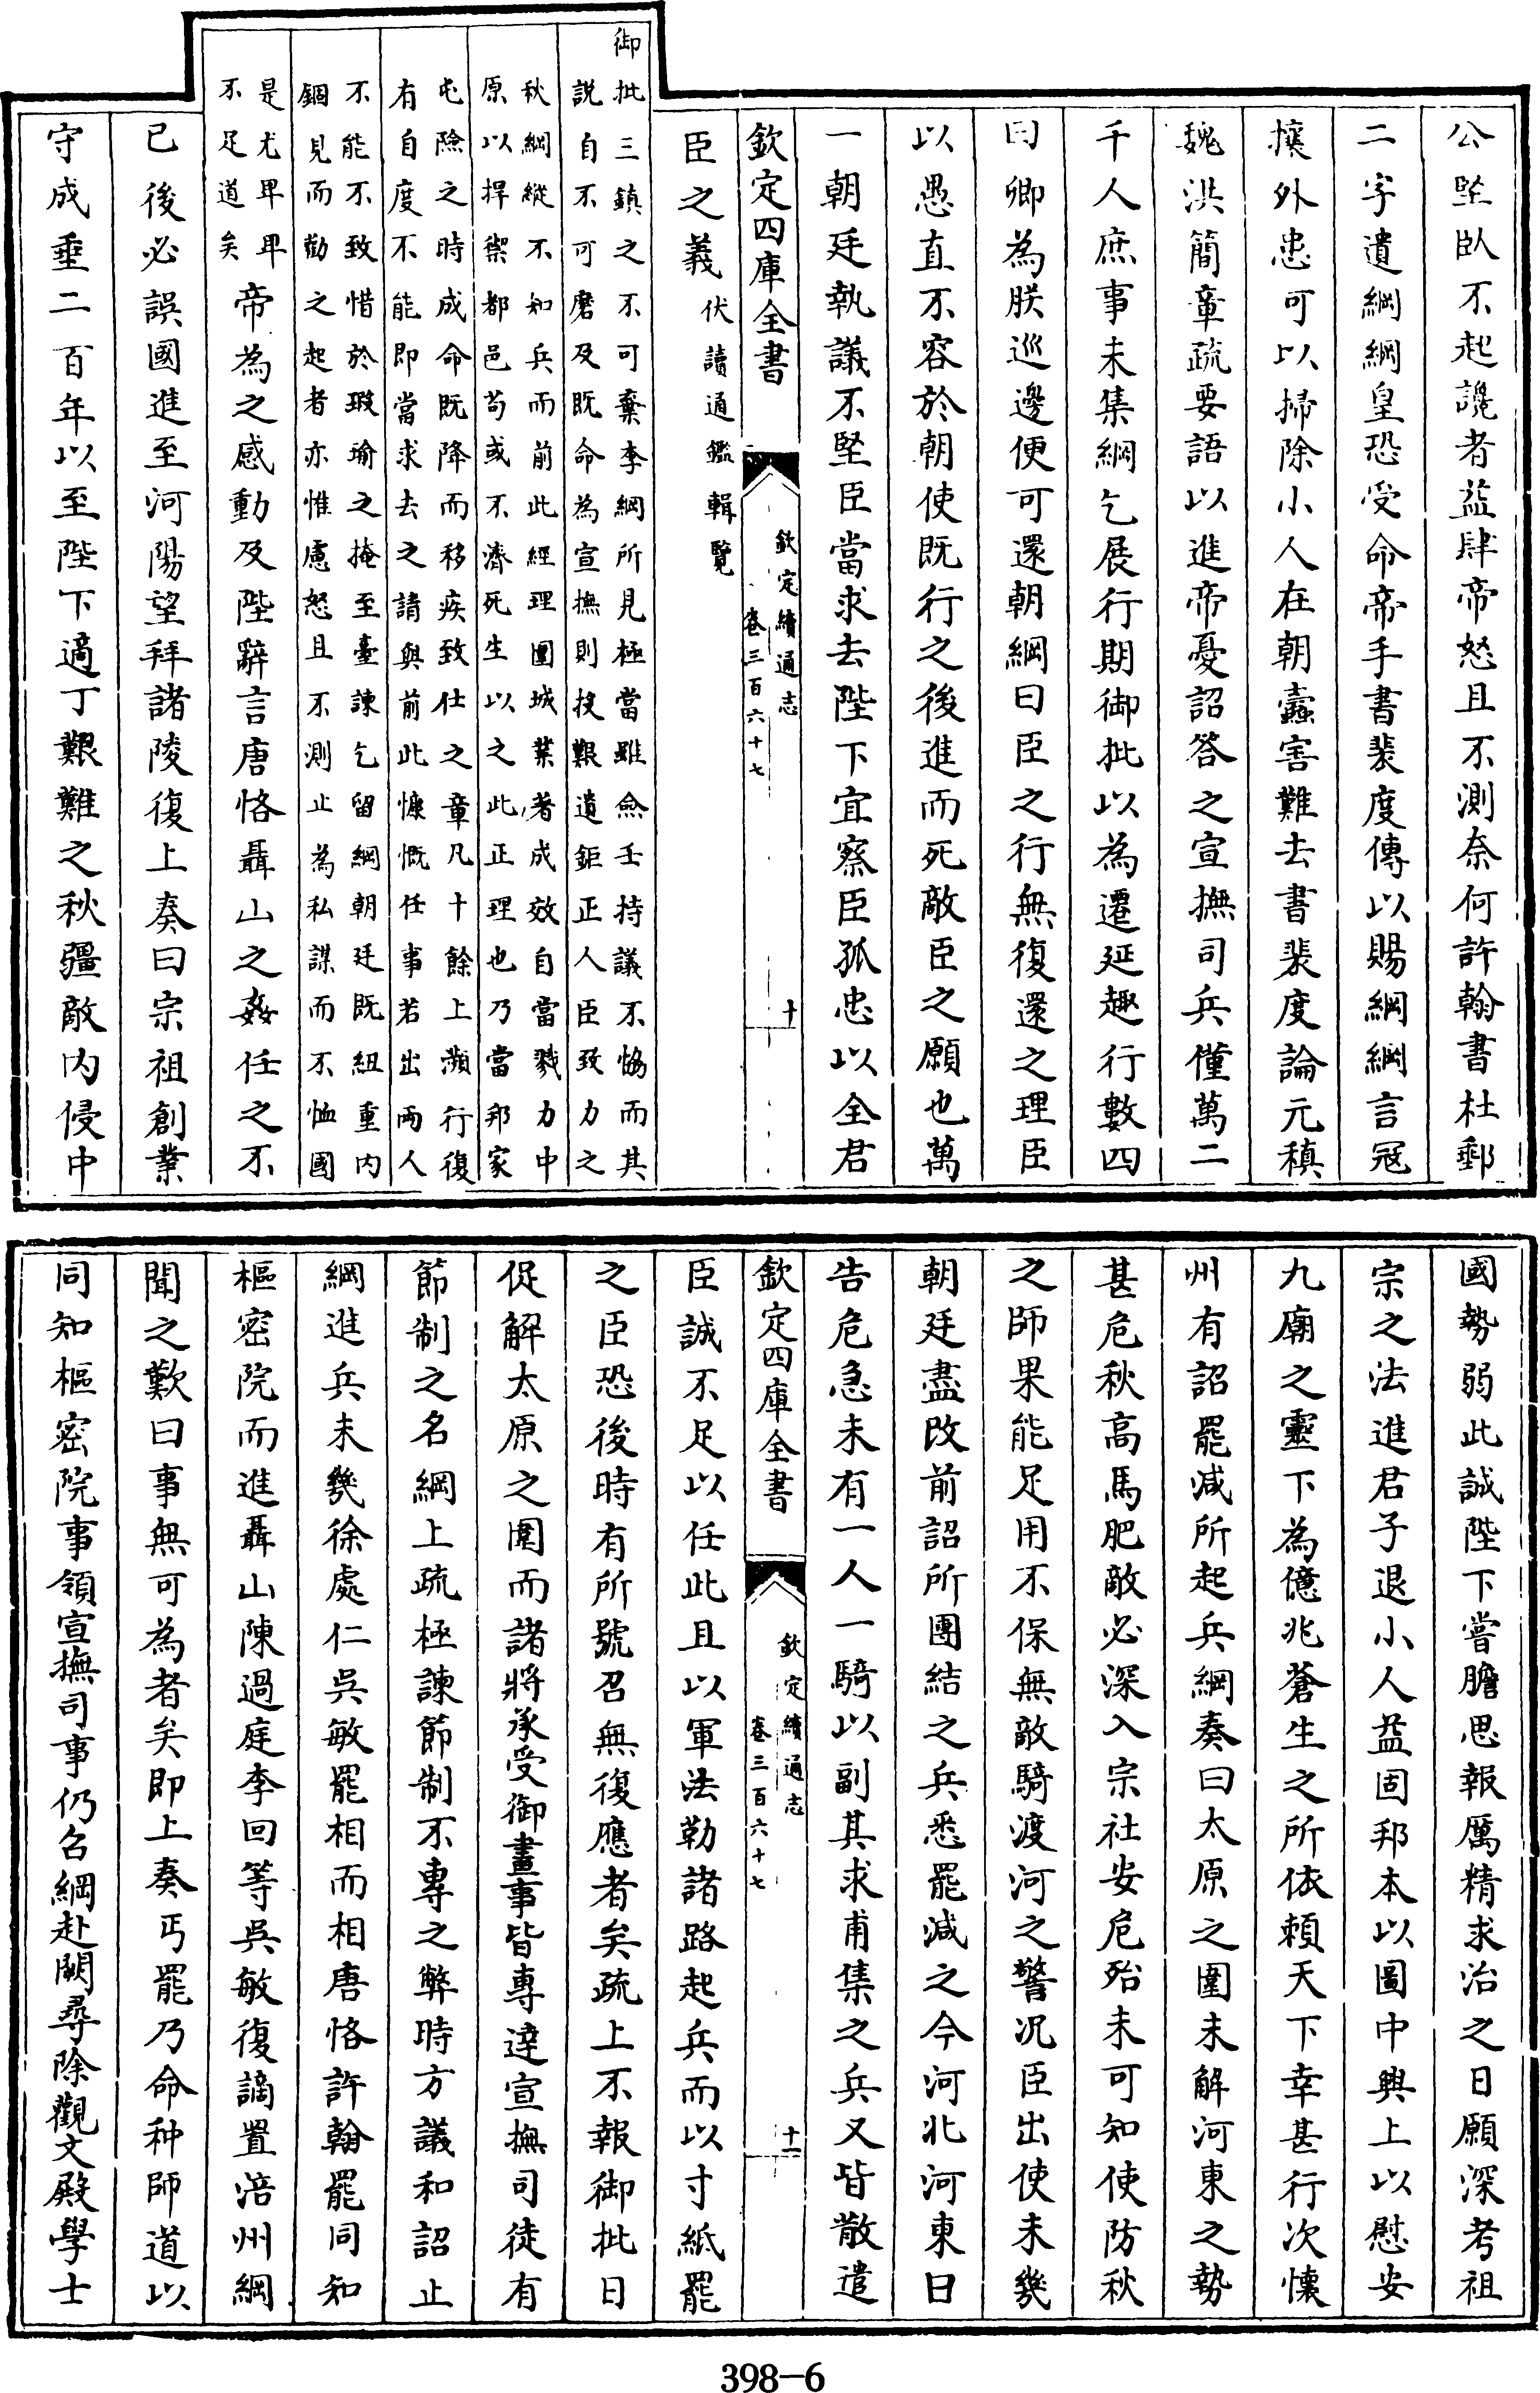 公堅臥不起讒者益肆帝怒且不測奈何許翰書杜郵
二字遺綱綱皇恐受命帝手書裴度傳以賜綱綱言冦
攘外患可以掃除小人在朝蠧害難去書裴度論元稹
魏洪簡章疏要語以進帝憂詔答之宣撫司兵僅萬二
千人庶事未集綱乞展行期御批以為遷延趣行數四
曰卿為朕巡邊便可還朝綱曰臣之行無復還之理臣
以愚直不容於朝使既行之後進而死敵臣之願也萬
一朝廷執議不堅臣當求去陛下宜察臣孤忠以全君
欽定四庫全書
欽定續通志
卷三百六十七
十
臣之義伏讀通鑑輯覽
御批三鎮之不可棄李綱所見極當雖僉壬持議不恊而其
說自不可磨及既命為宣撫則投艱遺鉅正人臣致力之
秋綱縱不知兵而前此經理圍城業著成效自當戮力中
原以捍禦都邑苟或不濟死生以之此正理也乃當邦家
屯險之時成命既降而移疾致仕之章凡十餘上瀕行復
有自度不能即當求去之請與前此慷慨任事若出兩人
不能不致惜於瑕瑜之掩至臺諫乞留綱朝廷既紐重内
錮見而勸之起者亦惟慮怒且不測止為私謀而不恤國
是尤卑卑
不足道矣
帝為之感動及陛辭言唐恪聶山之姦任之不
已後必誤國進至河陽望拜諸陵復上奏曰宗祖創業
守成垂二百年以至陛下適丁艱難之秋彊敵内侵中
國勢弱此誠陛下嘗膽思報厲精求治之日願深考祖
宗之法進君子退小人益固邦本以圖中興上以慰安
九廟之靈下為億兆蒼生之所依賴天下幸甚行次懷
州有詔罷減所起兵綱奏曰太原之圍未解河東之勢
甚危秋高馬肥敵必深入宗社安危殆未可知使防秋
之師果能足用不保無敵騎渡河之警況臣出使未幾
朝廷盡改前詔所團結之兵悉罷減之今河北河東日
告危急未有一人一騎以副其求甫集之兵又皆散遣
欽定四庫全書
欽定續通志
卷三百六十七
十一
臣誠不足以任此且以軍法勒諸路起兵而以寸紙罷
之臣恐後時有所號召無復應者矣疏上不報御批日
促解太原之圍而諸將承受御畫事皆專達宣撫司徒有
節制之名綱上疏極諫節制不專之弊時方議和詔止
綱進兵未幾徐處仁吳敏罷相而相唐恪許翰罷同知
樞密院而進聶山陳過庭李回等吳敏復謫置涪州綱
聞之歎曰事無可為者矣即上奏丐罷乃命种師道以
同知樞密院事領宣撫司事仍召綱赴闕尋除觀文殿學士
398-6